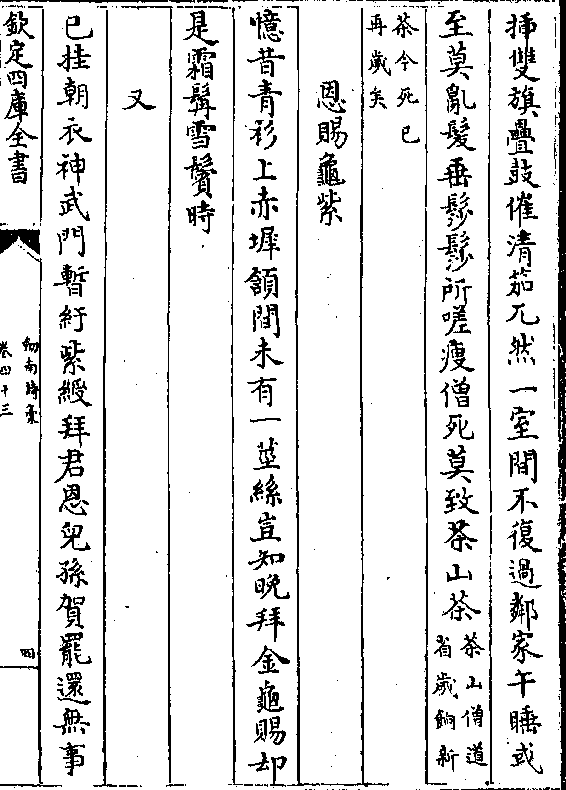 挿雙旗疊鼓催清笳兀然一室間不復過鄰家午睡或
至莫亂髮垂鬖鬖所嗟瘦僧死莫致茶山茶茶山僧道省歲餉新
茶今死已再歲矣
恩賜龜紫
憶昔青衫上赤墀頷間未有一莖絲豈知晚拜金龜賜却
是霜髯雪鬢時
又
已挂朝衣神武門暫紆紫綬拜君恩兒孫賀罷還無事
欽定四庫全書
劍南詩稾
卷四十三
四